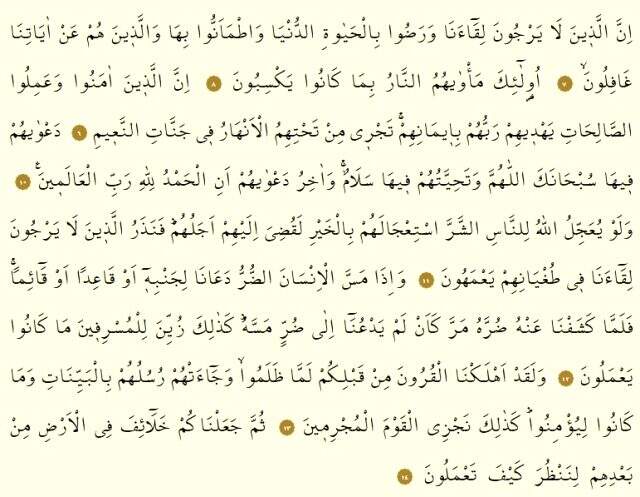 اِنَّ الَّذ۪ينَ لَا يَرْجُونَ لِقَٓاءَنَا وَرَضُوا بِالْحَيٰوةِ الدُّنْيَا وَاطْمَاَنُّوا بِهَا وَالَّذ۪ينَ هُمْ عَنْ اٰيَاتِنَا
غَافِلُونَۙ ٧ اُو۬لٰٓئِكَ مَأْوٰيهُمُ النَّارُ بِمَا كَانُوا يَكْسِبُونَ ٨ اِنَّ الَّذ۪ينَ اٰمَنُوا وَعَمِلُوا
الصَّالِحَاتِ يَهْد۪يهِمْ رَبُّهُمْ بِا۪يمَانِهِمْۚ تَجْر۪ي مِنْ تَحْتِهِمُ الْاَنْهَارُ ف۪ي جَنَّاتِ النَّع۪يمِ ٩ دَعْوٰيهُمْ
ف۪يهَا سُبْحَانَكَ اللّٰهُمَّ وَتَحِيَّتُهُمْ ف۪يهَا سَلَامٌۚ وَاٰخِرُ دَعْوٰيهُمْ اَنِ الْحَمْدُ لِلّٰهِ رَبِّ الْعَالَم۪ينَ۟ ١٠
وَلَوْ يُعَجِّلُ اللّٰهُ لِلنَّاسِ الشَّرَّ اسْتِعْجَالَهُمْ بِالْخَيْرِ لَقُضِيَ اِلَيْهِمْ اَجَلُهُمْۜ فَنَذَرُ الَّذ۪ينَ لَا يَرْجُونَ
لِقَٓاءَنَا ف۪ي طُغْيَانِهِمْ يَعْمَهُونَ ١١ وَاِذَا مَسَّ الْاِنْسَانَ الضُّرُّ دَعَانَا لِجَنْبِه۪ٓ اَوْ قَاعِدًا اَوْ قَٓائِمًاۚ
فَلَمَّا كَشَفْنَا عَنْهُ ضُرَّهُ مَرَّ كَاَنْ لَمْ يَدْعُنَٓا اِلٰى ضُرٍّ مَسَّهُۜ كَذٰلِكَ زُيِّنَ لِلْمُسْرِف۪ينَ مَا كَانُوا
يَعْمَلُونَ ١٢ وَلَقَدْ اَهْلَكْنَا الْقُرُونَ مِنْ قَبْلِكُمْ لَمَّا ظَلَمُواۙ وَجَٓاءَتْهُمْ رُسُلُهُمْ بِالْبَيِّنَاتِ وَمَا
كَانُوا لِيُؤْمِنُواۜ كَذٰلِكَ نَجْزِي الْقَوْمَ الْمُجْرِم۪ينَ ١٣ ثُمَّ جَعَلْنَاكُمْ خَلَٓائِفَ فِي الْاَرْضِ مِنْ
بَعْدِهِمْ لِنَنْظُرَ كَيْفَ تَعْمَلُونَ ١٤